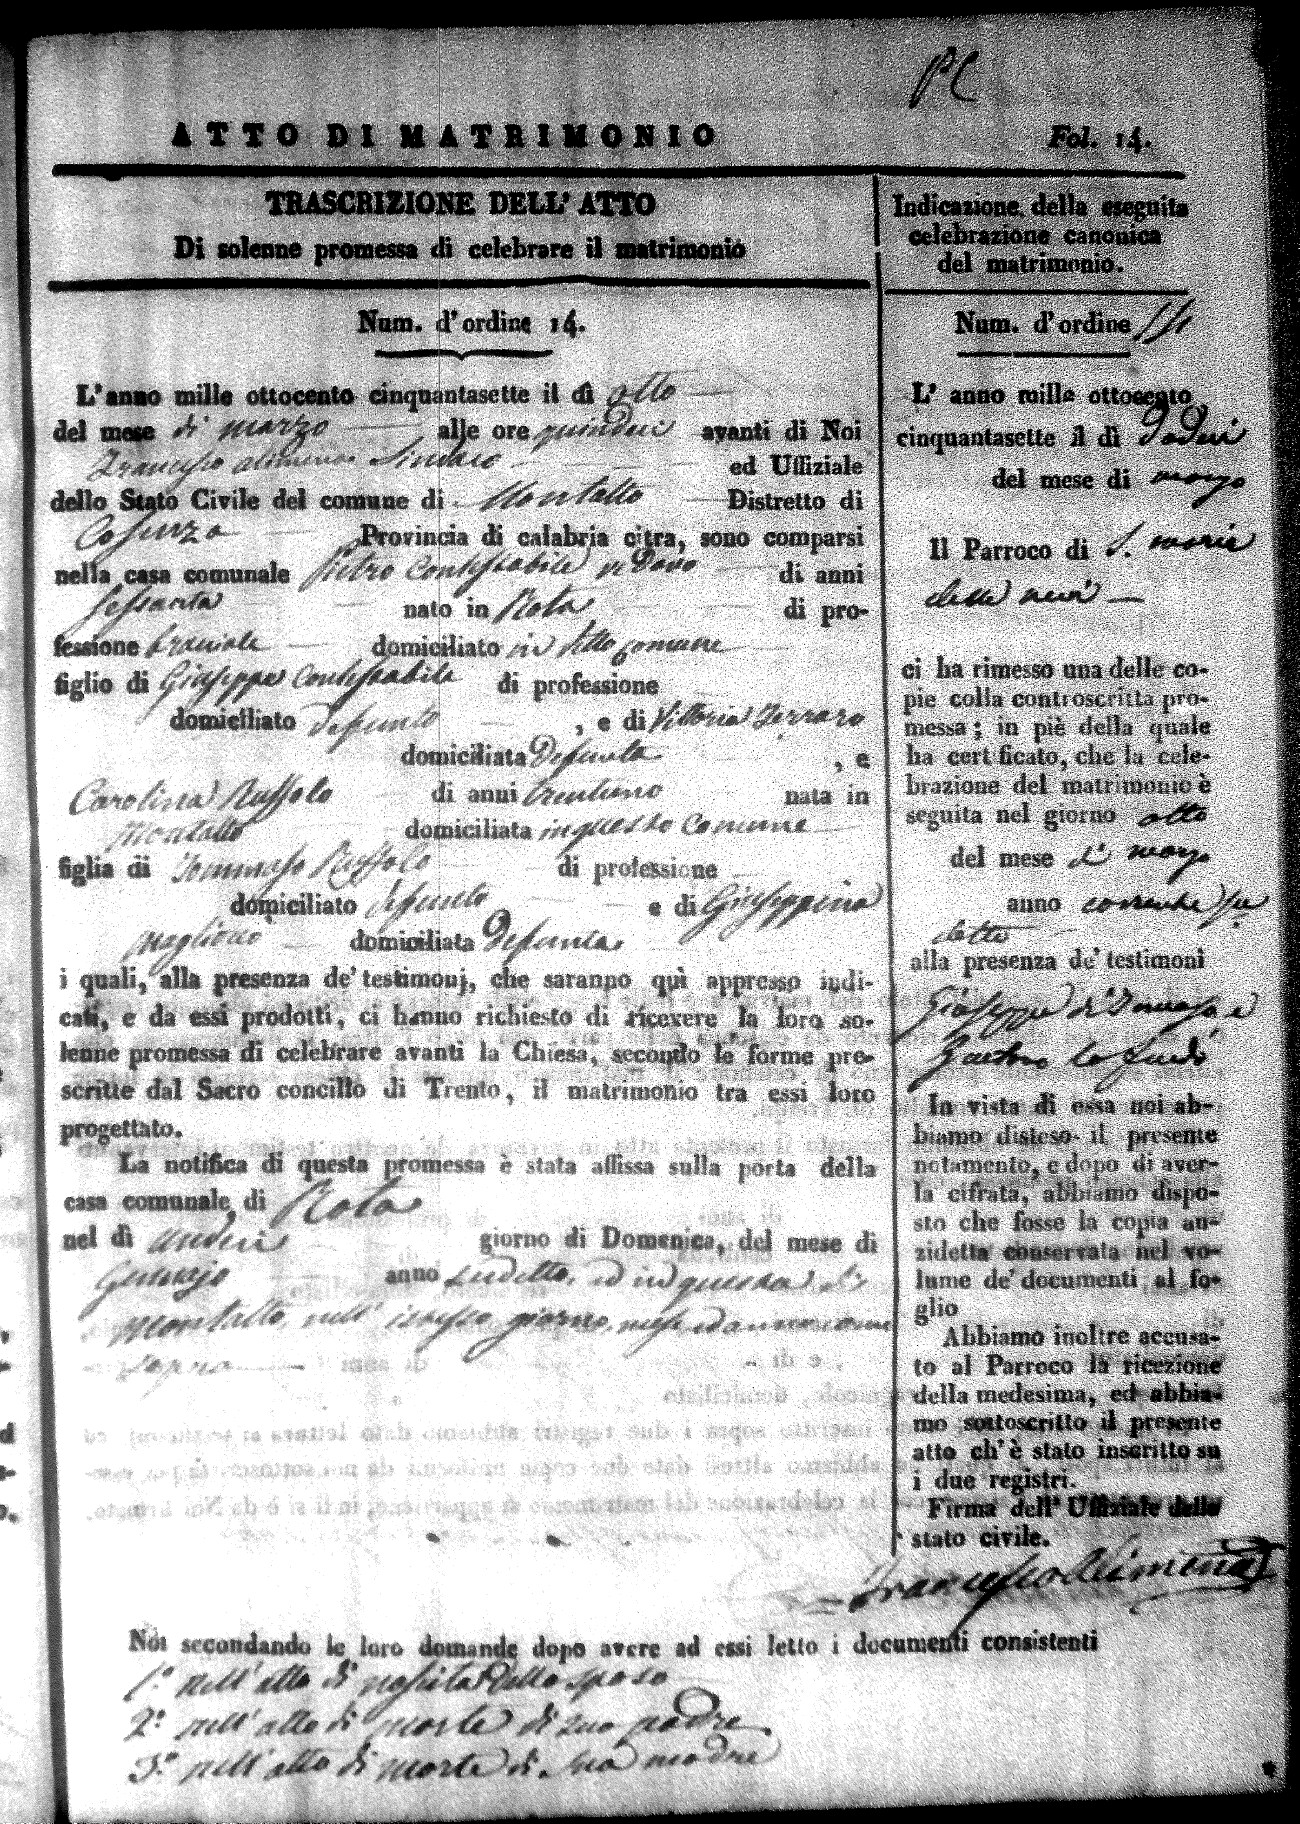 PC
ATTO DI MATRIMONIO
Fol. 14.
TRASCRIZIONE DELL' ATTO
Di solenne promessa di celebrare il matrimonio
Num. d' ordine 14.
L'anno mille ottocento cinquantasette il dì otto
del mese di marzo alle ore quindeci avanti di Noi
Francesco Alimena Sindaco ed Uffiziale
dello Stato Civile del comune di Montalto Distretto di
Cosenza Provincia di calabria citra, sono comparsi
nella casa comunale Pietro Contestabile vedovo di anni
sessanta nato in Rota di pro-
fessione bracciale domiciliato in detto comune
figlio di Giuseppe Contestabile di professione
domiciliato defunto , e di Vittoria Ferraro
domiciliata Defunta , e
Carolina Ruffolo di anni trentuno nata in
Montalto domiciliata in questo Comune
figlia di Tommaso Ruffolo di professione
domiciliato defunto e di Giuseppina
Magliocco domiciliata Defunta
i quali, alla presenza de' testimonj, che saranno quì appresso indi-
cati, e da essi prodotti, ci hanno richiesto di ricevere la loro so-
lenne promessa di celebrare avanti la Chiesa, secondo le forme pre-
scritte dal Sacro concillo di Trento, il matrimonio tra essi loro
progettato.
La notifica di questa promessa è stata affissa sulla porta della
casa comunale di Rota
nel dì undeci giorno di Domenica, del mese di
Gennajo anno sudetto, ed in questa di
Montalto, nell' istesso giorno, mese ed anno come
sopra
Indicazione della eseguita
celebrazione canonica
del matrimonio.
Num. d' ordine 14
L' anno mille ottocento
cinquantasette il dì dodeci
del mese di marzo
Il Parroco di S. Maria
della neve
ci ha rimesso una delle co-
pie colla controscritta pro-
messa; in piè della quale
ha certificato, che la cele-
brazione del matrimonio è
seguita nel giorno otto
del mese di marzo
anno corrente su
detto
alla presenza de' testimoni
Giuseppe e
Gaetano
In vista di essa noi ab-
biamo disteso il presente
notamento, e dopo di aver-
la cifrata, abbiamo dispo-
sto che fosse la copia an-
zidetta conservata nel vo-
lume de' documenti al fo-
glio
Abbiamo inoltre accusa-
to al Parroco la ricezione
della medesima, ed abbia-
mo sottoscritto il presente
atto ch' è stato inscritto su
i due registri.
Firma dell' Uffiziale dello
stato civile.
Francesco Alimena
Noi secondando le loro domande dopo avere ad essi letto i documenti consistenti
1.° nell' atto di nascita dello sposo
2.° nell' atto di morte di suo padre
3.° nell' atto di morte di sua madre